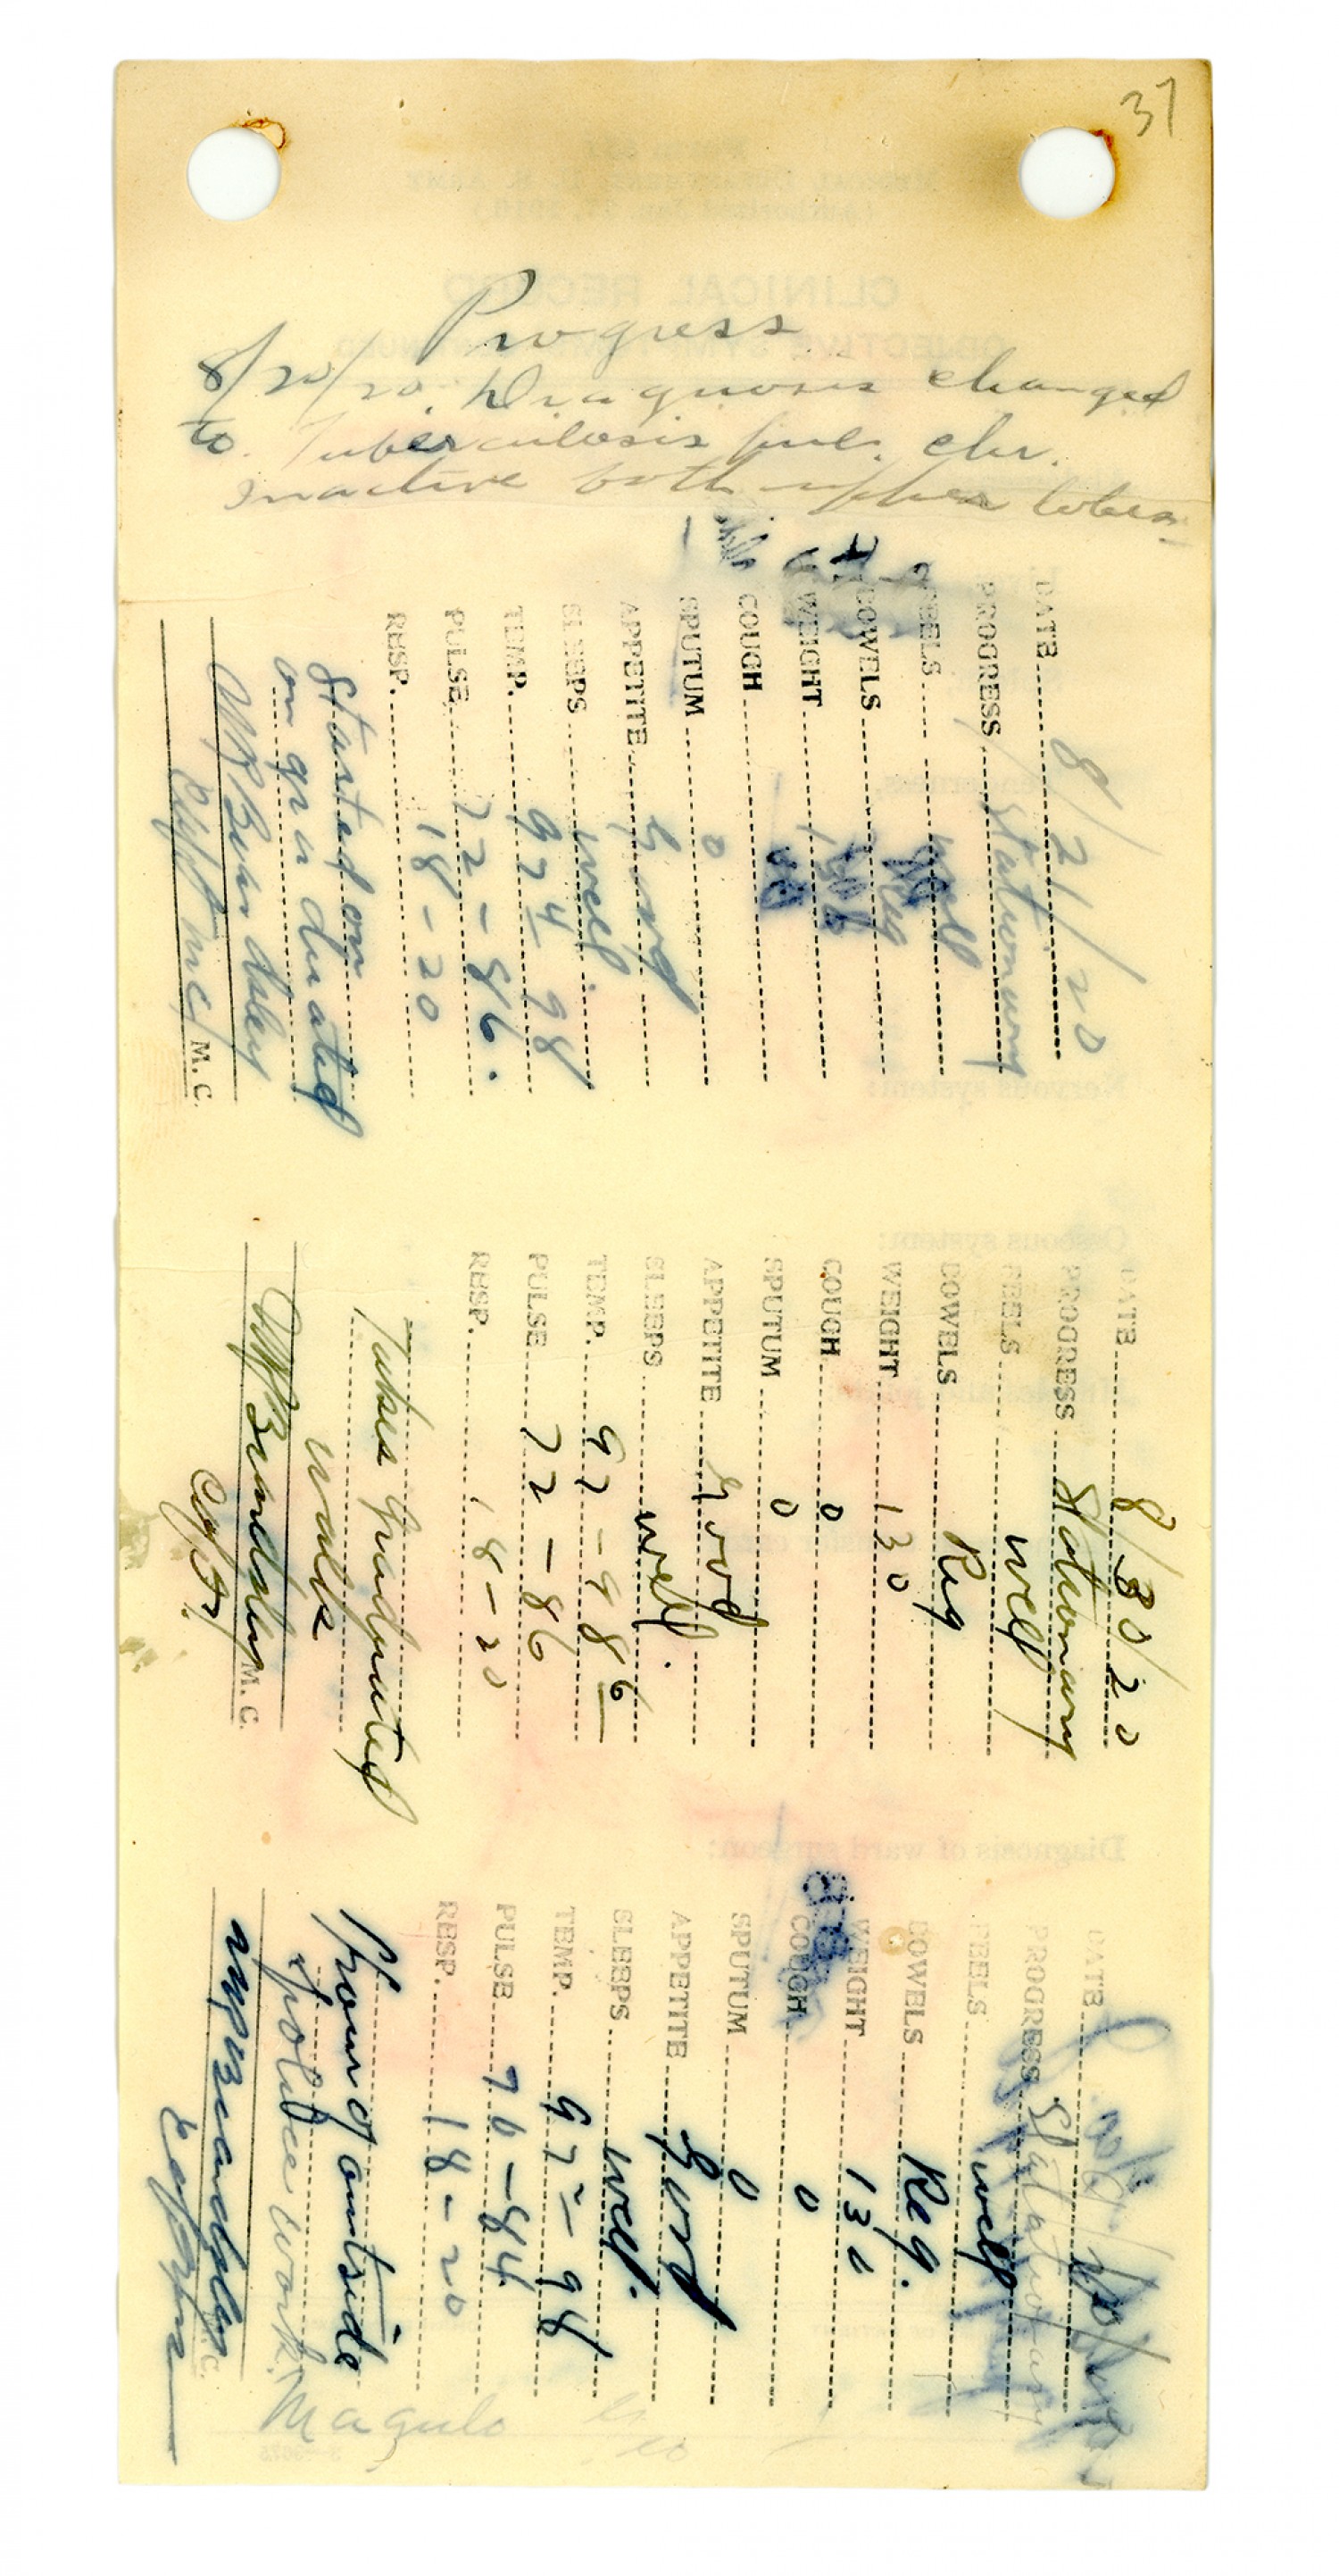 37
Progress
8/20/20. Diagnosis changed
to Tuberculosis pul. chr.
inactive both upper lobes
DATE 8/21/20
PROGRESS Stationary
FEELS Well
BOWELS Reg
WEIGHT
COUGH
SPUTUM 0
APPETITE Good
SLEEPS well
TEMP. 97 4 98
PULSE 72-86.
RESP. 18-20
Started on
graduated
Capt M C
M. C.
DATE 8/30/20
PROGRESS Stationary
FEELS well
BOWELS Reg
WEIGHT 130
COUGH 0
SPUTUM 0
APPETITE Good
SLEEPS well.
TEMP. 97-98 6
PULSE 72-86
RESP. 18-20
Takes graduated
walks
M. C.
Capt
DATE
PROGRESS Stationary
FEELS well
BOWELS Reg.
WEIGHT 130
COUGH 0
SPUTUM 0
APPETITE Good
SLEEPS well.
TEMP. 97 2-98
PULSE 76-84
RESP. 18-20
1 hour of outside
police work.
C.
Magulo